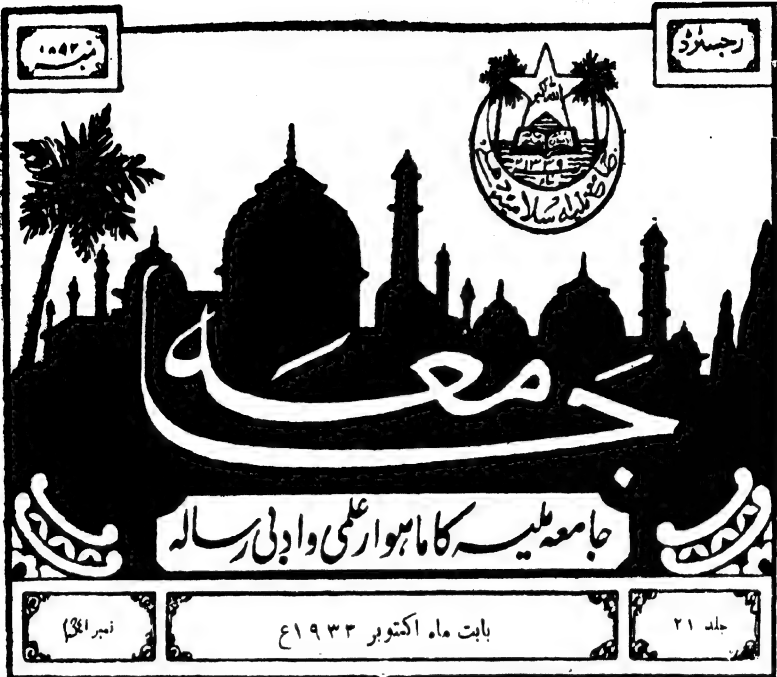 رجسٹرڈ
نمبر ۱۸۴۲
اللہ اکبر
۱۳۳۹
جامعہ ملیہ اسلامیہ دہلی
جامعہ
جامعہ ملیہ کا ماہوار علمی و ادبی رسالہ
جلد ۲۱
بابت ماہ اکتوبر ۱۹۳۳ع
نمبر